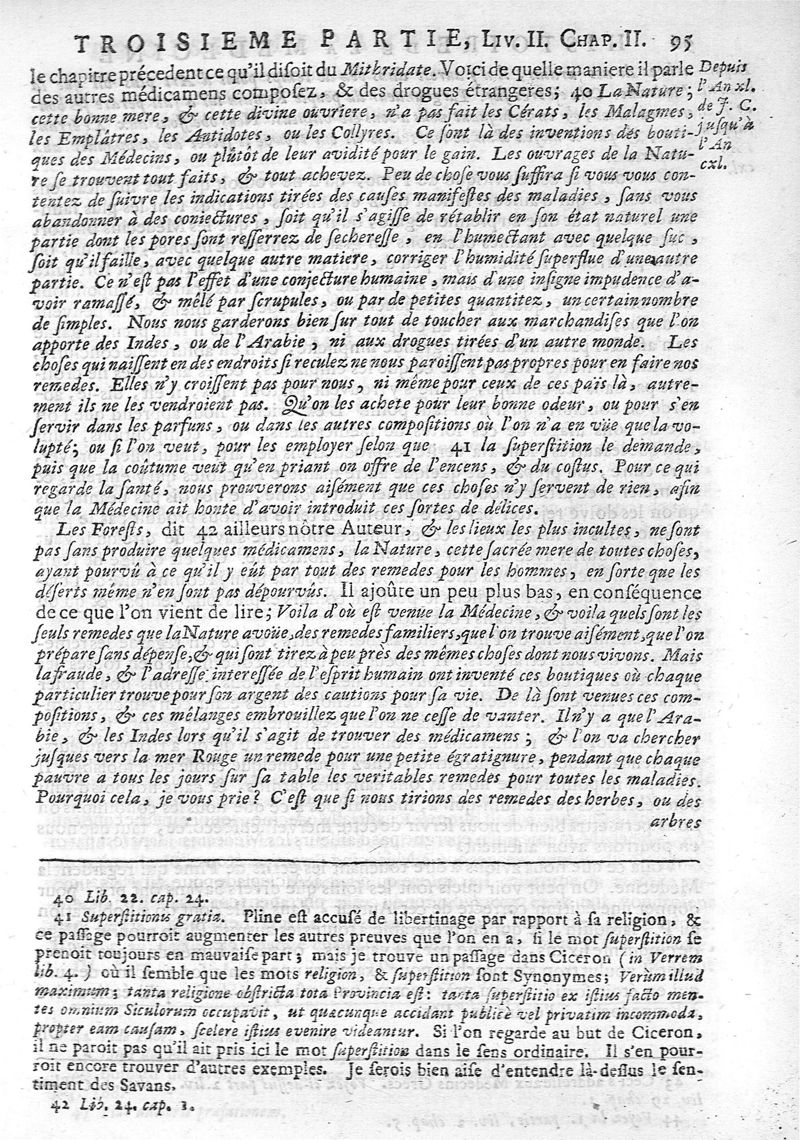 TROISIEME PARTIE, LIV. II. CHAP. II. 95
le chapitre précedent ce qu'il disoit du Mithridate. Voici de quelle maniere il parle
des autres médicamens composez, & des drogues étrangeres; 40 La Nature;
cette bonne mere, & cette divine ouvriere, n'a pas fait les Cérats, les Malagmes,
les Emplâtres, les Antidotes, ou les Collyres. Ce sont là des inventions des bouti-
ques des Médecins, ou plûtôt de leur avidité pour le gain. Les ouvrages de la Natu-
re se trouvent tout faits, & tout achevez. Peu de chose vous suffira si vous vous con-
tentez de suivre les indications tirées des causes manifestes des maladies, sans vous
abandonner à des coniectures, soit qu'il s'agisse de rétablir en son état naturel une
partie dont les pores sont resserrez de secheresse, en l'humectant avec quelque suc,
soit qu'il faille, avec quelque autre matiere, corriger l'humidité superflue d'une autre
partie. Ce n'est pas l'effet d'une conjecture humaine, mais d'une insigne impudence d'a-
voir ramassé, & mêlé par scrupules, ou par de petites quantitez, un certain nombre
de simples. Nous nous garderons bien sur tout de toucher aux marchandises que l'on
apporte des Indes, ou de l'Arabie, ni aux drogues tirées d'un autre monde. Les
choses qui naissent en des endroits si reculez ne nous paroissent pas propres pour en faire nos
remedes. Elles n'y croissent pas pour nous, ni même pour ceux de ces païs là, autre-
ment ils ne les vendroient pas. Qu'on les achete pour leur bonne odeur, ou pour s'en
servir dans les parfuns, ou dans les autres compositions où l'on n'a en vüe que la vo-
lupté; ou si l'on veut, pour les employer selon que 41 la superstition le demande,
puis que la coûtume veut qu'en priant on offre de l'encens, & du costus. Pour ce qui
regarde la santé, nous prouverons aisément que ces choses n'y servent de rien, afin
que la Médecine ait honte d'avoir introduit ces sortes de délices.
Les Forests, dit 42 ailleurs nôtre Auteur, & les lieux les plus incultes, ne sont
pas sans produire quelques médicamens, la Nature, cette sacrée mere de toutes choses,
ayant pourvû à ce qu'il y eût par tout des remedes pour les hommes, en sorte que les
déserts même n'en sont pas dépourvûs. Il ajoûte un peu plus bas, en conséquence
de ce que l'on vient de lire; Voila d'où est venue la Médecine, & voila quels sont les
seuls remedes que la Nature avoüe, des remedes familiers, que l'on trouve aisément, que l'on
prépare sans dépense, & qui sont tirez à peu près des mêmes choses dont nous vivons. Mais
la fraude, & l'adresse interessée de l'esprit humain ont inventé ces boutiques où chaque
particulier trouve pour son argent des cautions pour sa vie. De là sont venues ces com-
positions, & ces mélanges embrouillez que l'on ne cesse de vanter. Il n'y a que l'Ara-
bie, & les Indes lors qu'il s'agit de trouver des médicamens; & l'on va chercher
jusques vers la mer Rouge un remede pour une petite égratignure, pendant que chaque
pauvre a tous les jours sur sa table les veritables remedes pour toutes les maladies.
Pourquoi cela, je vous prie? C'est que si nous tirions des remedes des herbes, ou des
arbres
Depuis
l'An xl.
de J. C.
jusqu'à
l'An
cxl.
40 Lib. 22. cap. 24.
41 Superstitionis gratia. Pline est accusé de libertinage par rapport à sa religion, &
ce passage pourroit augmenter les autres preuves que l'on en a, si le mot superstition se
prenoit toujours en mauvaise part; mais je trouve un passage dans Ciceron (in Verrem
lib. 4.) où il semble que les mots religion, & superstition sont Synonymes; Verùm illud
maximum; tanta religione obstricta tota Provincia est: tanta superstitio ex istius facto men-
tes omnium Siculorum occupavit, ut quæcunque accidant publicè vel privatim incommoda,
propter eam causam, scelere istius evenire videantur. Si l'on regarde au but de Ciceron,
il ne paroit pas qu'il ait pris ici le mot superstition dans le sens ordinaire. Il s'en pour-
roit encore trouver d'autres exemples. Je serois bien aise d'entendre là-dessus le sen-
timent des Savans.
42 Lib. 24. cap. 1.